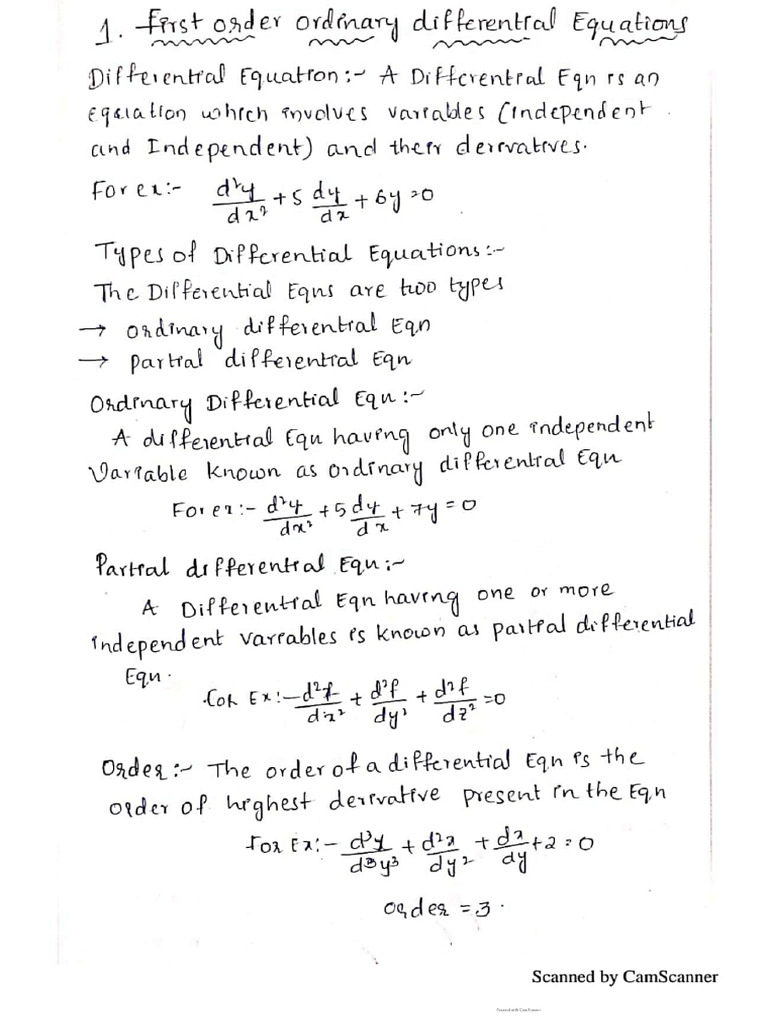 1. First order ordinary differential Equations
Differential Equation:- A Differential Eqn is an
equation which involves variables (independent
and Independent) and their derivatives.
For ex:- d²y/dx² + 5 dy/dx + 6y = 0
Types of Differential Equations:-
The Differential Eqns are two types
→ ordinary differential Eqn
→ partial differential Eqn
Ordinary Differential Eqn:-
A differential Eqn having only one independent
Variable known as ordinary differential Eqn
For ex:- d²y/dx² + 5 dy/dx + 7y = 0
Partial differential Eqn:-
A Differential Eqn having one or more
independent variables is known as partial differential
Eqn.
For Ex:- d²f/dx² + d²f/dy² + d²f/dz² = 0
Order:- The order of a differential Eqn is the
order of highest derivative present in the Eqn
For Ex:- d³y/d³y³ + d²x/dy² + dx/dy + 2 = 0
order = 3.
Scanned by CamScanner
Scanned with CamScanner